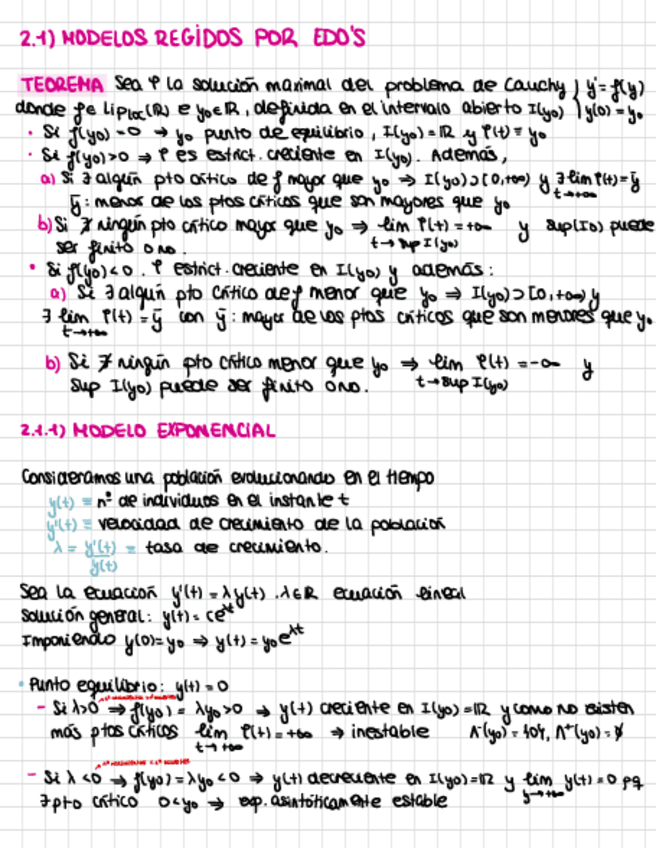 2.1) MODELOS REGIDOS POR EDO'S
TEOREMA Sea φ la solución maximal del problema de Cauchy } y' = f(y)
donde f∈ Lip loc(ℝ) e y₀∈ℝ, definida en el intervalo abierto I(y₀) } y(0) = y₀
· Si f(y₀) = 0 → y₀ punto de equilibrio, I(y₀) = ℝ y φ(t) ≡ y₀
· Si f(y₀)>0 ⇒ φ es estrict. creciente en I(y₀). Además,
a) Si ∃ algún pto crítico de f mayor que y₀ ⇒ I(y₀)⊃[0,+∞) y ∃ lim φ(t) = ȳ
t→+∞
ȳ: menor de los ptos críticos que son mayores que y₀
b) Si ∄ ningún pto crítico mayor que y₀ ⇒ lim φ(t) = +∞ y sup(I₀) puede
t→ sup I(y₀)
ser finito o no.
• Si f(y₀)<0. φ estrict. creciente en I(y₀) y además:
a) Si ∃ algún pto crítico de f menor que y₀ ⇒ I(y₀)⊃[0,+∞) y
∃ lim φ(t) = ȳ con ȳ: mayor de los ptos críticos que son menores que y₀
t→+∞
b) Si ∄ ningún pto crítico menor que y₀ ⇒ lim φ(t) = -∞ y
t→sup I(y₀)
Sup I(y₀) puede ser finito o no.
2.1.1) MODELO EXPONENCIAL
Consideramos una población evolucionando en el tiempo
y(t) ≡ nº de individuos en el instante t
y'(t) ≡ velocidad de crecimiento de la población
λ = y'(t)/y(t) ≡ tasa de crecimiento.
Sea la ecuación y'(t) = λy(t). λ∈ℝ ecuación lineal
Solución general: y(t) = ce^λt
Imponiendo y(0) = y₀ ⇒ y(t) = y₀e^λt
• Punto equilibrio: y(t) = 0
- Si λ>0 ⇒ f(y₀) = λy₀>0 → y(t) creciente en I(y₀) = ℝ y como no existen
más ptos críticos lim φ(t) = +∞ → inestable Λ⁻(y₀) = {0}, Λ⁺(y₀) = ∅
t→+∞
- Si λ<0 ⇒ f(y₀) = λy₀<0 ⇒ y(t) decreciente en I(y₀) = ℝ y lim y(t) = 0 pq
y→+∞
∃ pto crítico 0<y₀ → exp. asintóticamente estable